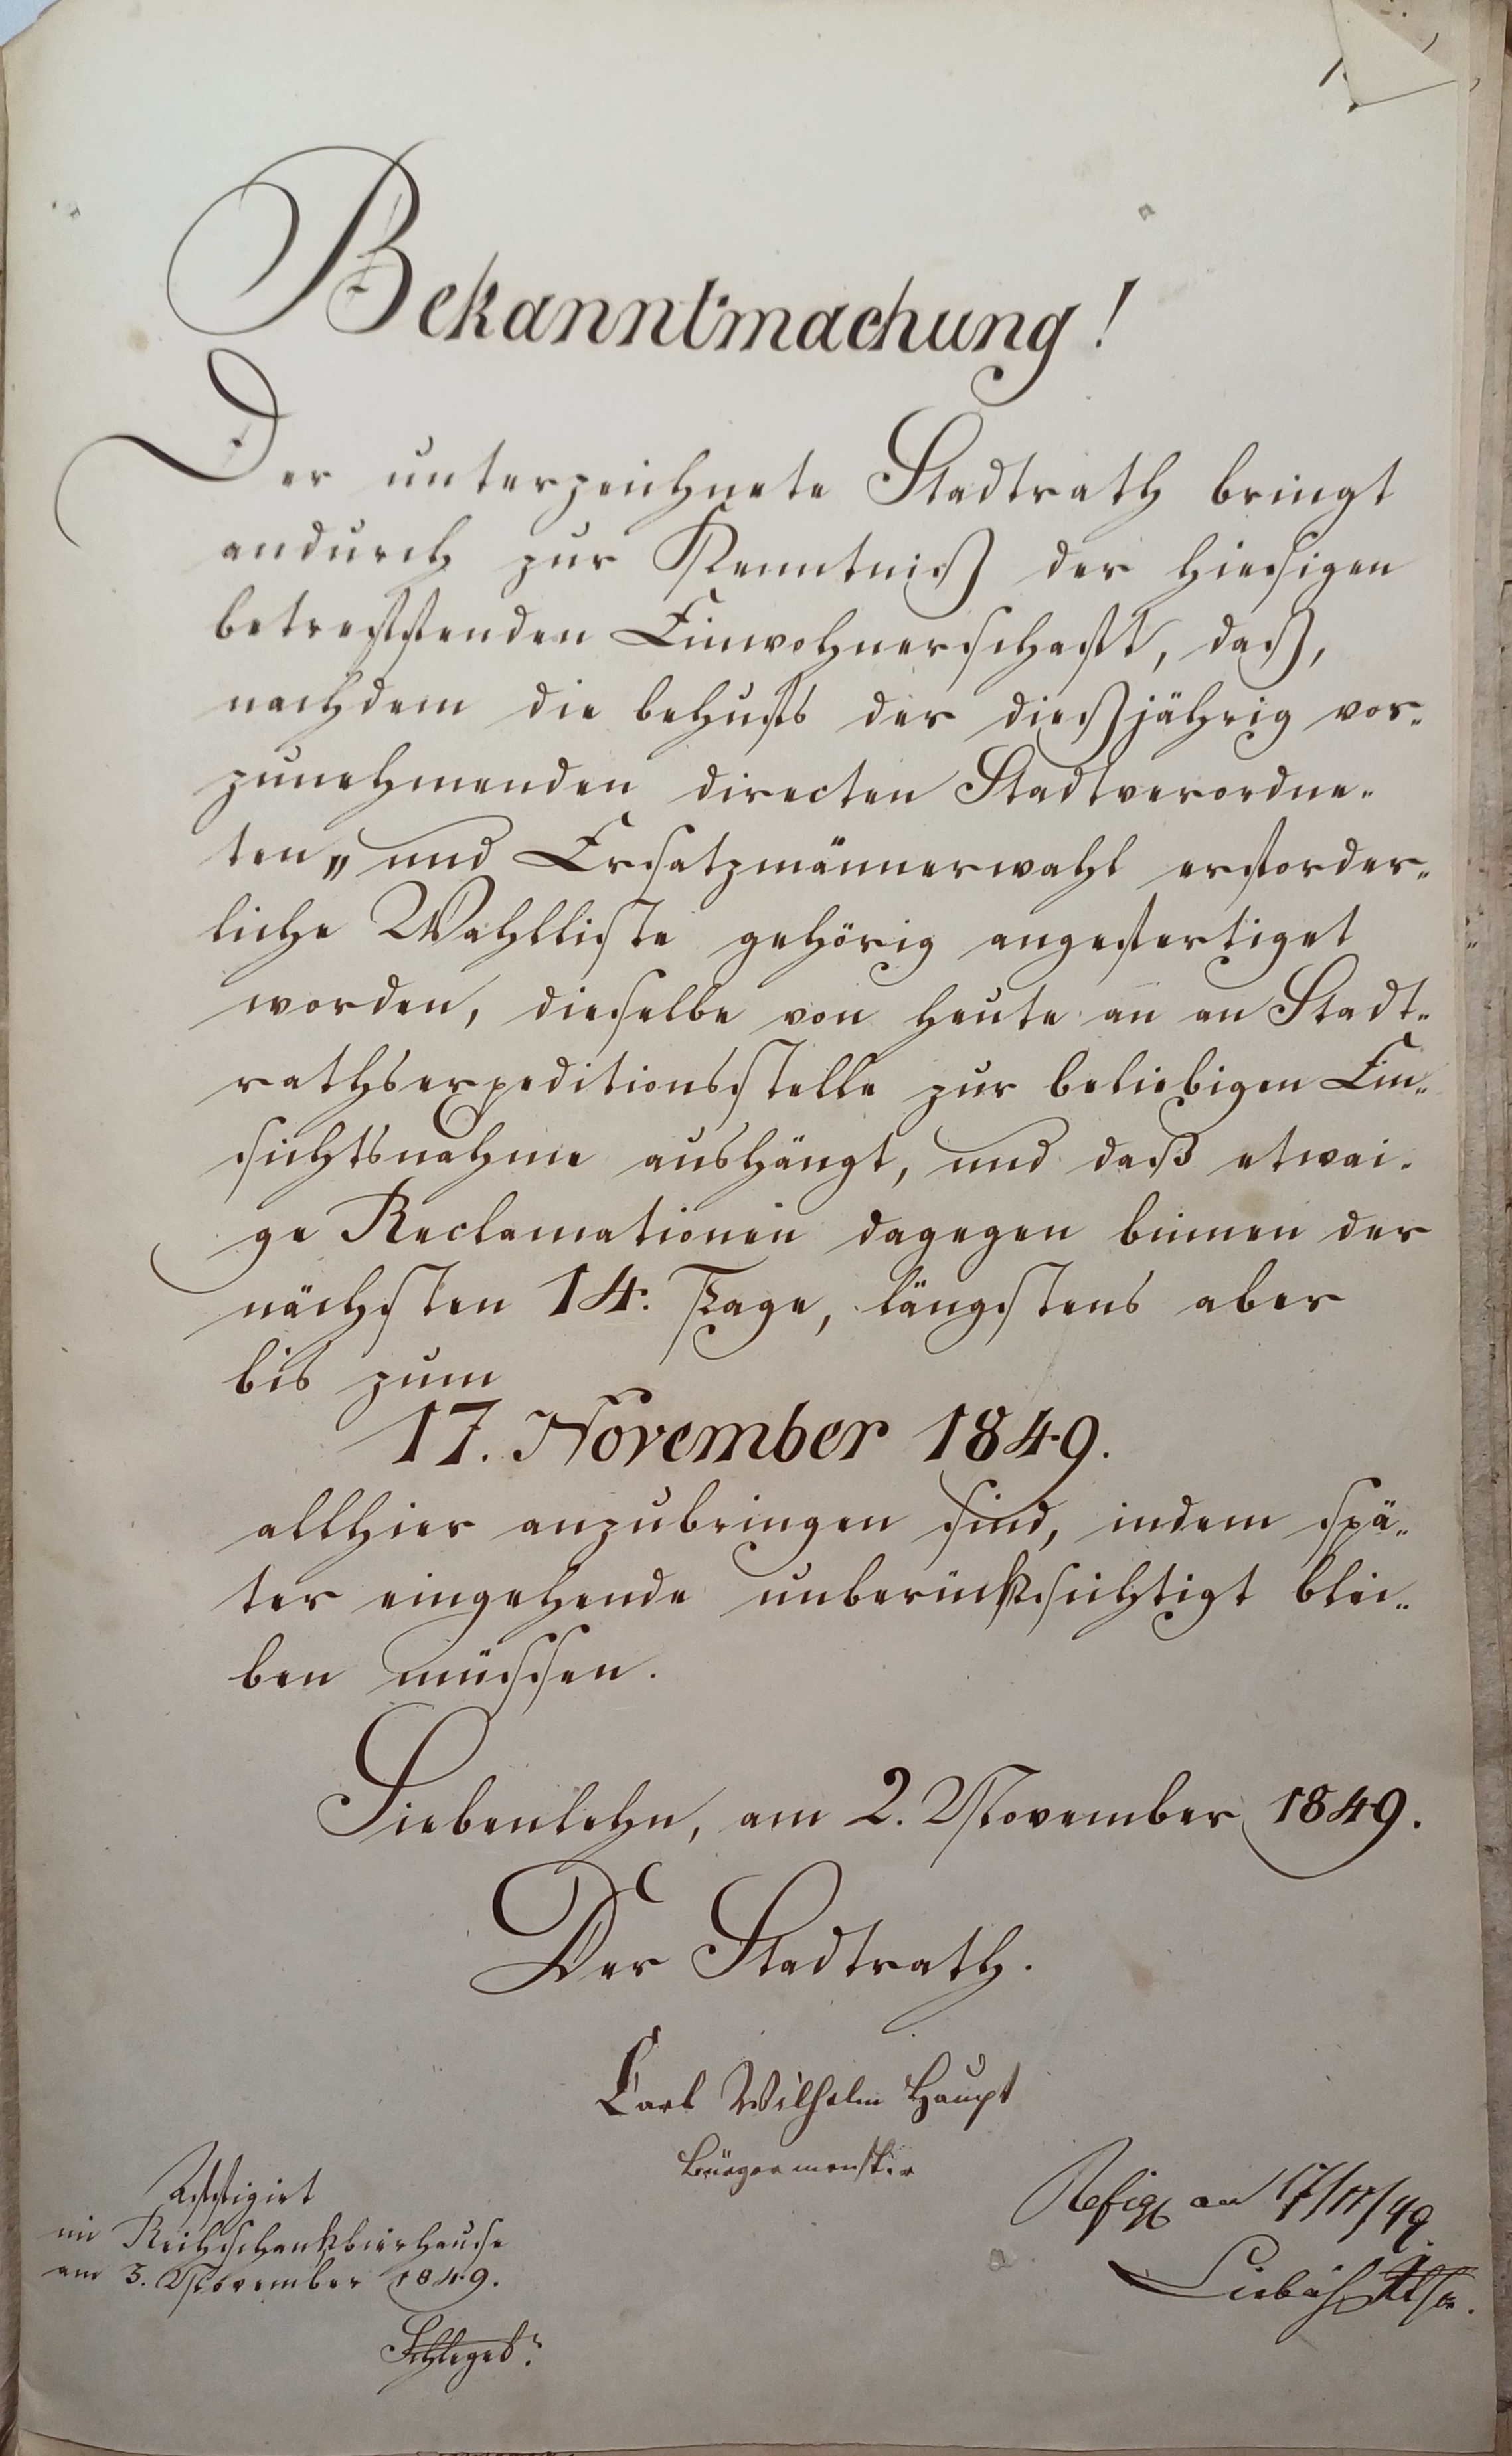 Bekanntmachung!
Der unterzeichnete Stadtrath bringt
andurch zur Kenntniß der hiesigen
betreffenden Einwohnerschaft, daß,
nachdem die behufs der dießjährig vor-
zunehmenden directen Stadtverordne-
ten- und Ersatzmännerwahl erforder-
liche Wahlliste gehörig angefertiget
worden, dieselbe von heute an an Stadt-
rathsexpeditionsstelle zur beliebigen Ein-
sichtsnahme aushängt, und daß etwai-
ge Reclamationen dagegen binnen der
nächsten 14. Tage, längstens aber
bis zum
17. November 1849.
allhier anzubringen sind, indem spä-
ter eingehende unberücksichtigt blei-
ben müssen.
Siebenlehn, am 2. November 1849.
Der Stadtrath.
Carl Wilhelm Haupt
Bürgermeister
Affigirt
im Reihschankbierhause
am 3. November 1849.
Schlegel
Refig am 17/11/49.